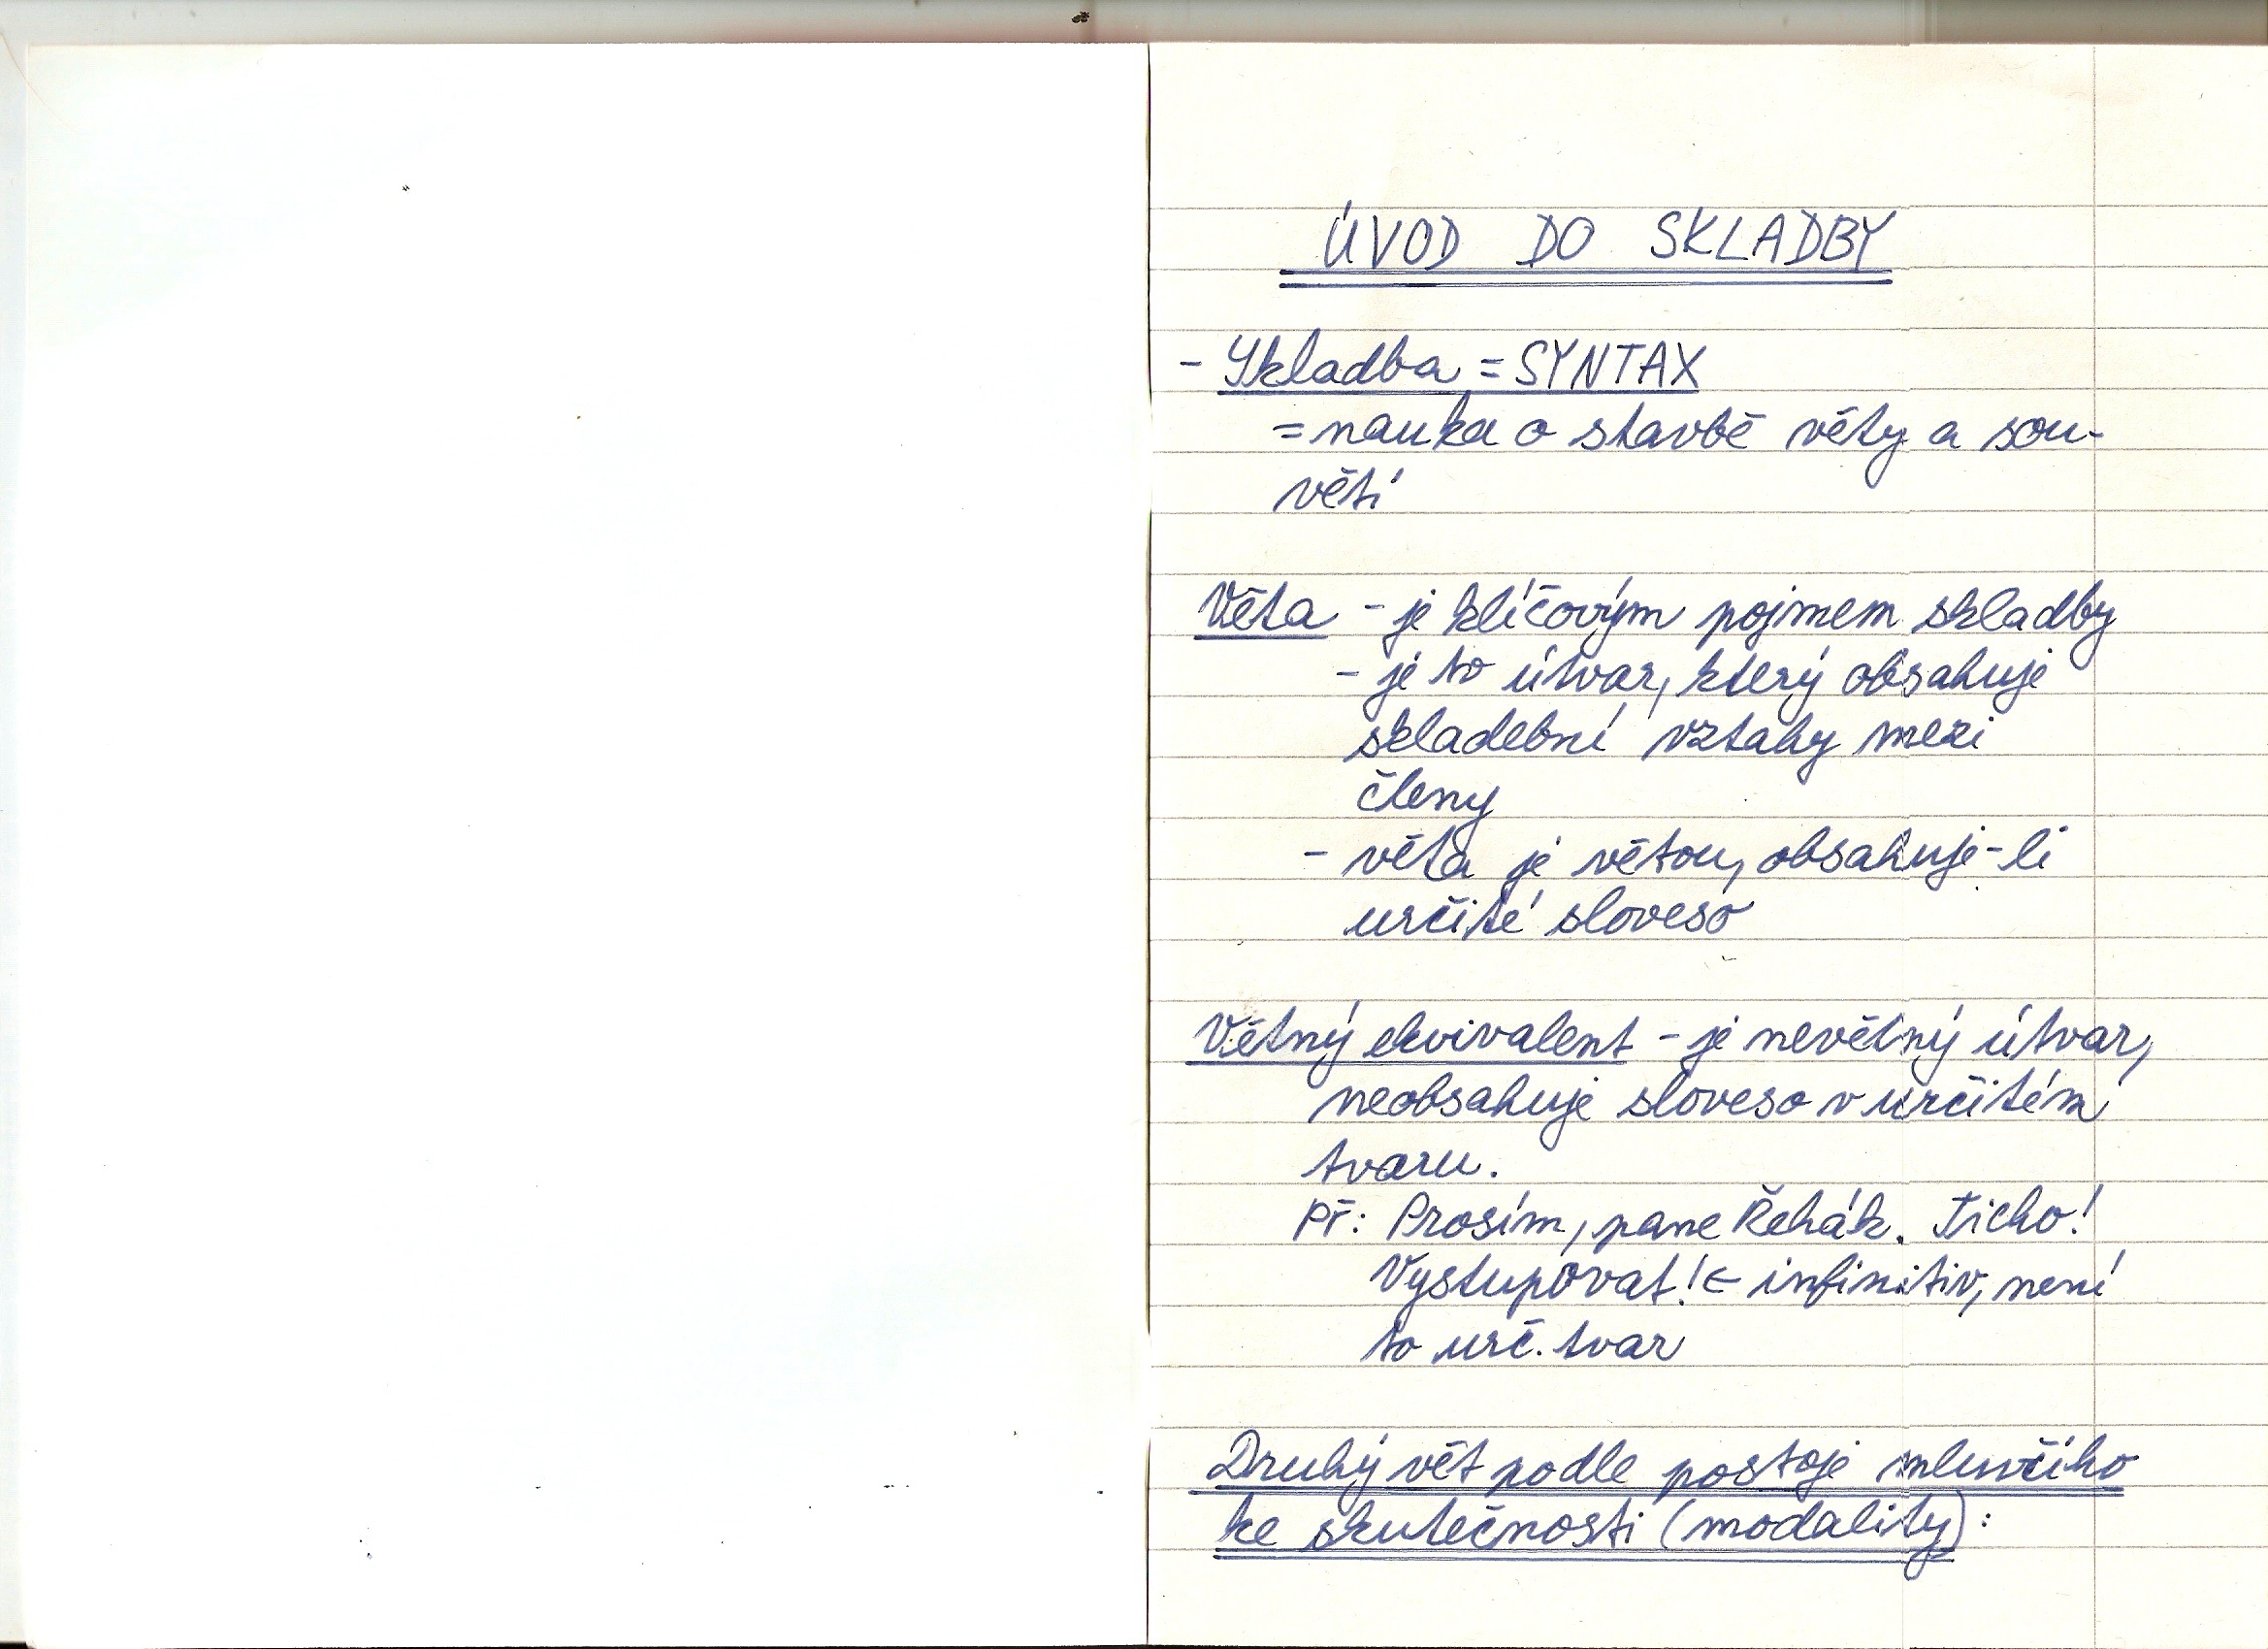 ÚVOD DO SKLADBY
- Skladba = SYNTAX
= nauka o stavbě věty a sou-
větí
Věta - je klíčovým pojmem skladby
- je to útvar, který obsahuje
skladební vztahy mezi
členy
- věta je větou, obsahuje-li
určité sloveso
Větný ekvivalent - je nevětný útvar,
neobsahuje sloveso v určitém
tvaru.
Př: Prosím, pane Řehák. Ticho!
Vystupovat! ← infinitiv, není
to urč. tvar
Druhý vět podle postoje mluvčího
ke skutečnosti (modality):